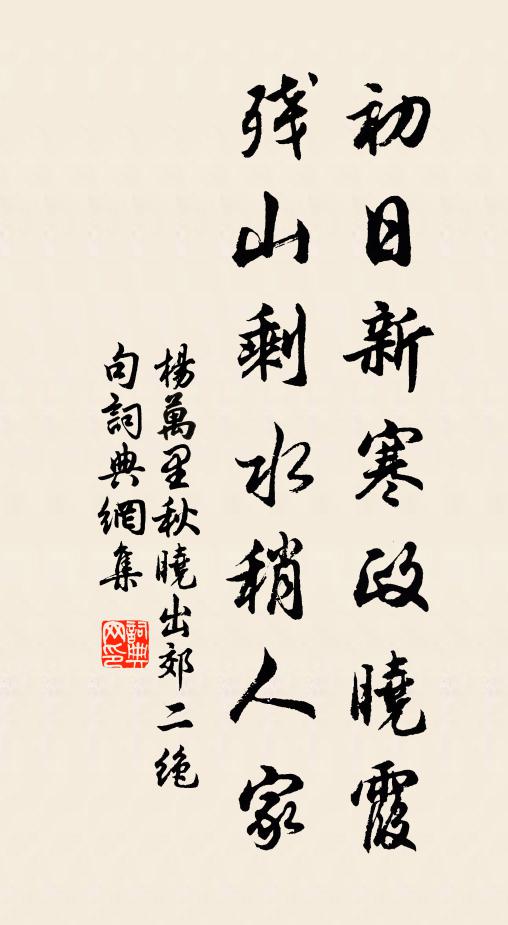 初日新寒政曉霞
残山剩水稍人家
楊萬里秋曉出郊二絶
句詞典網集
詞典网印